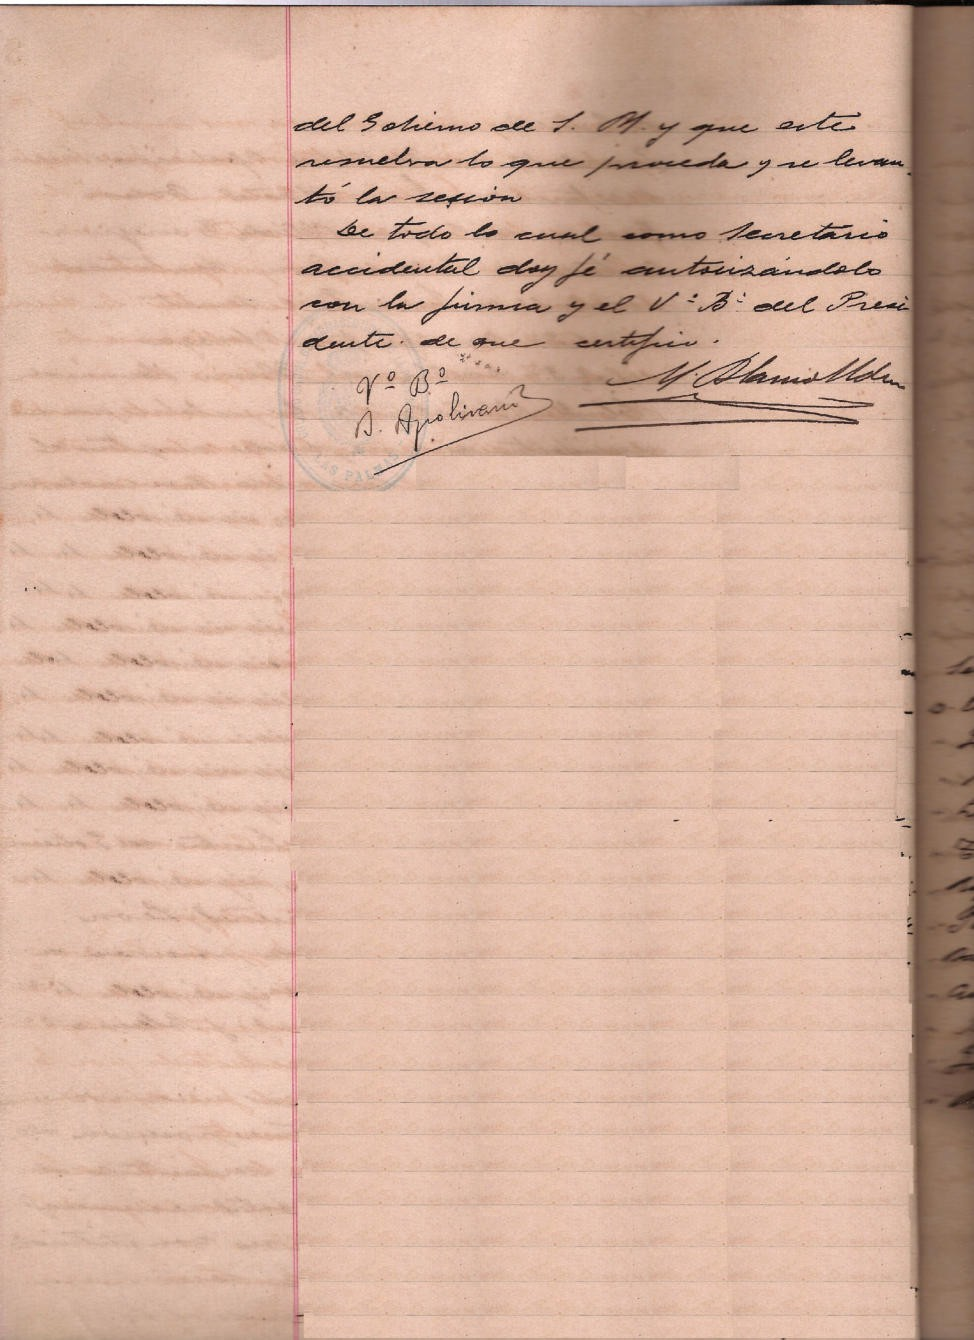 del Gobierno de S. M. y que este
resuelva lo que proceda y se levan-
tó la sesión
De todo lo cual como Secretario
accidental doy fé autorizándolo
con la firma y el Vº Bº del Presi
dente de que certifico.
Vº Bº
LAS PALMAS